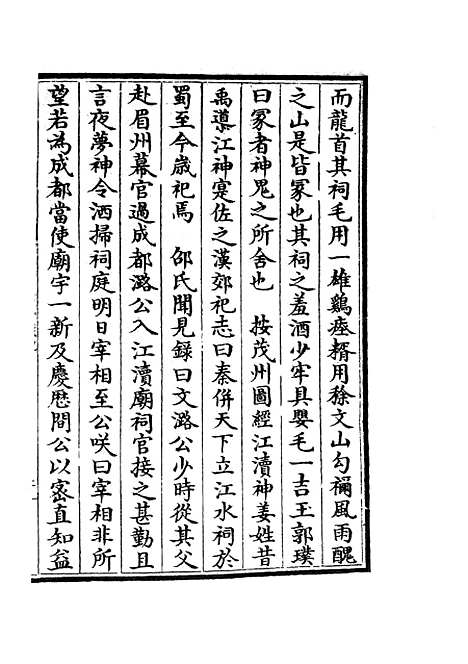 而龍首其祠毛用一雄鷄瘞糈用稌文山勾禰風雨騩
之山是皆冢也其祠之羞酒少牢具嬰毛一吉玉郭璞
曰冢者神鬼之所舍也　按茂州圖經江瀆神姜姓昔
禹導江神寔佐之漢郊祀志曰秦併天下立江水祠於
蜀至今歲祀焉　邵氏聞見錄曰文潞公少時從其父
赴眉州幕官過成都潞公入江瀆廟祠官接之甚勤且
言夜夢神令洒掃祠庭明日宰相至公咲曰宰相非所
望若為成都當使廟宇一新及慶厯間公以宻直知益